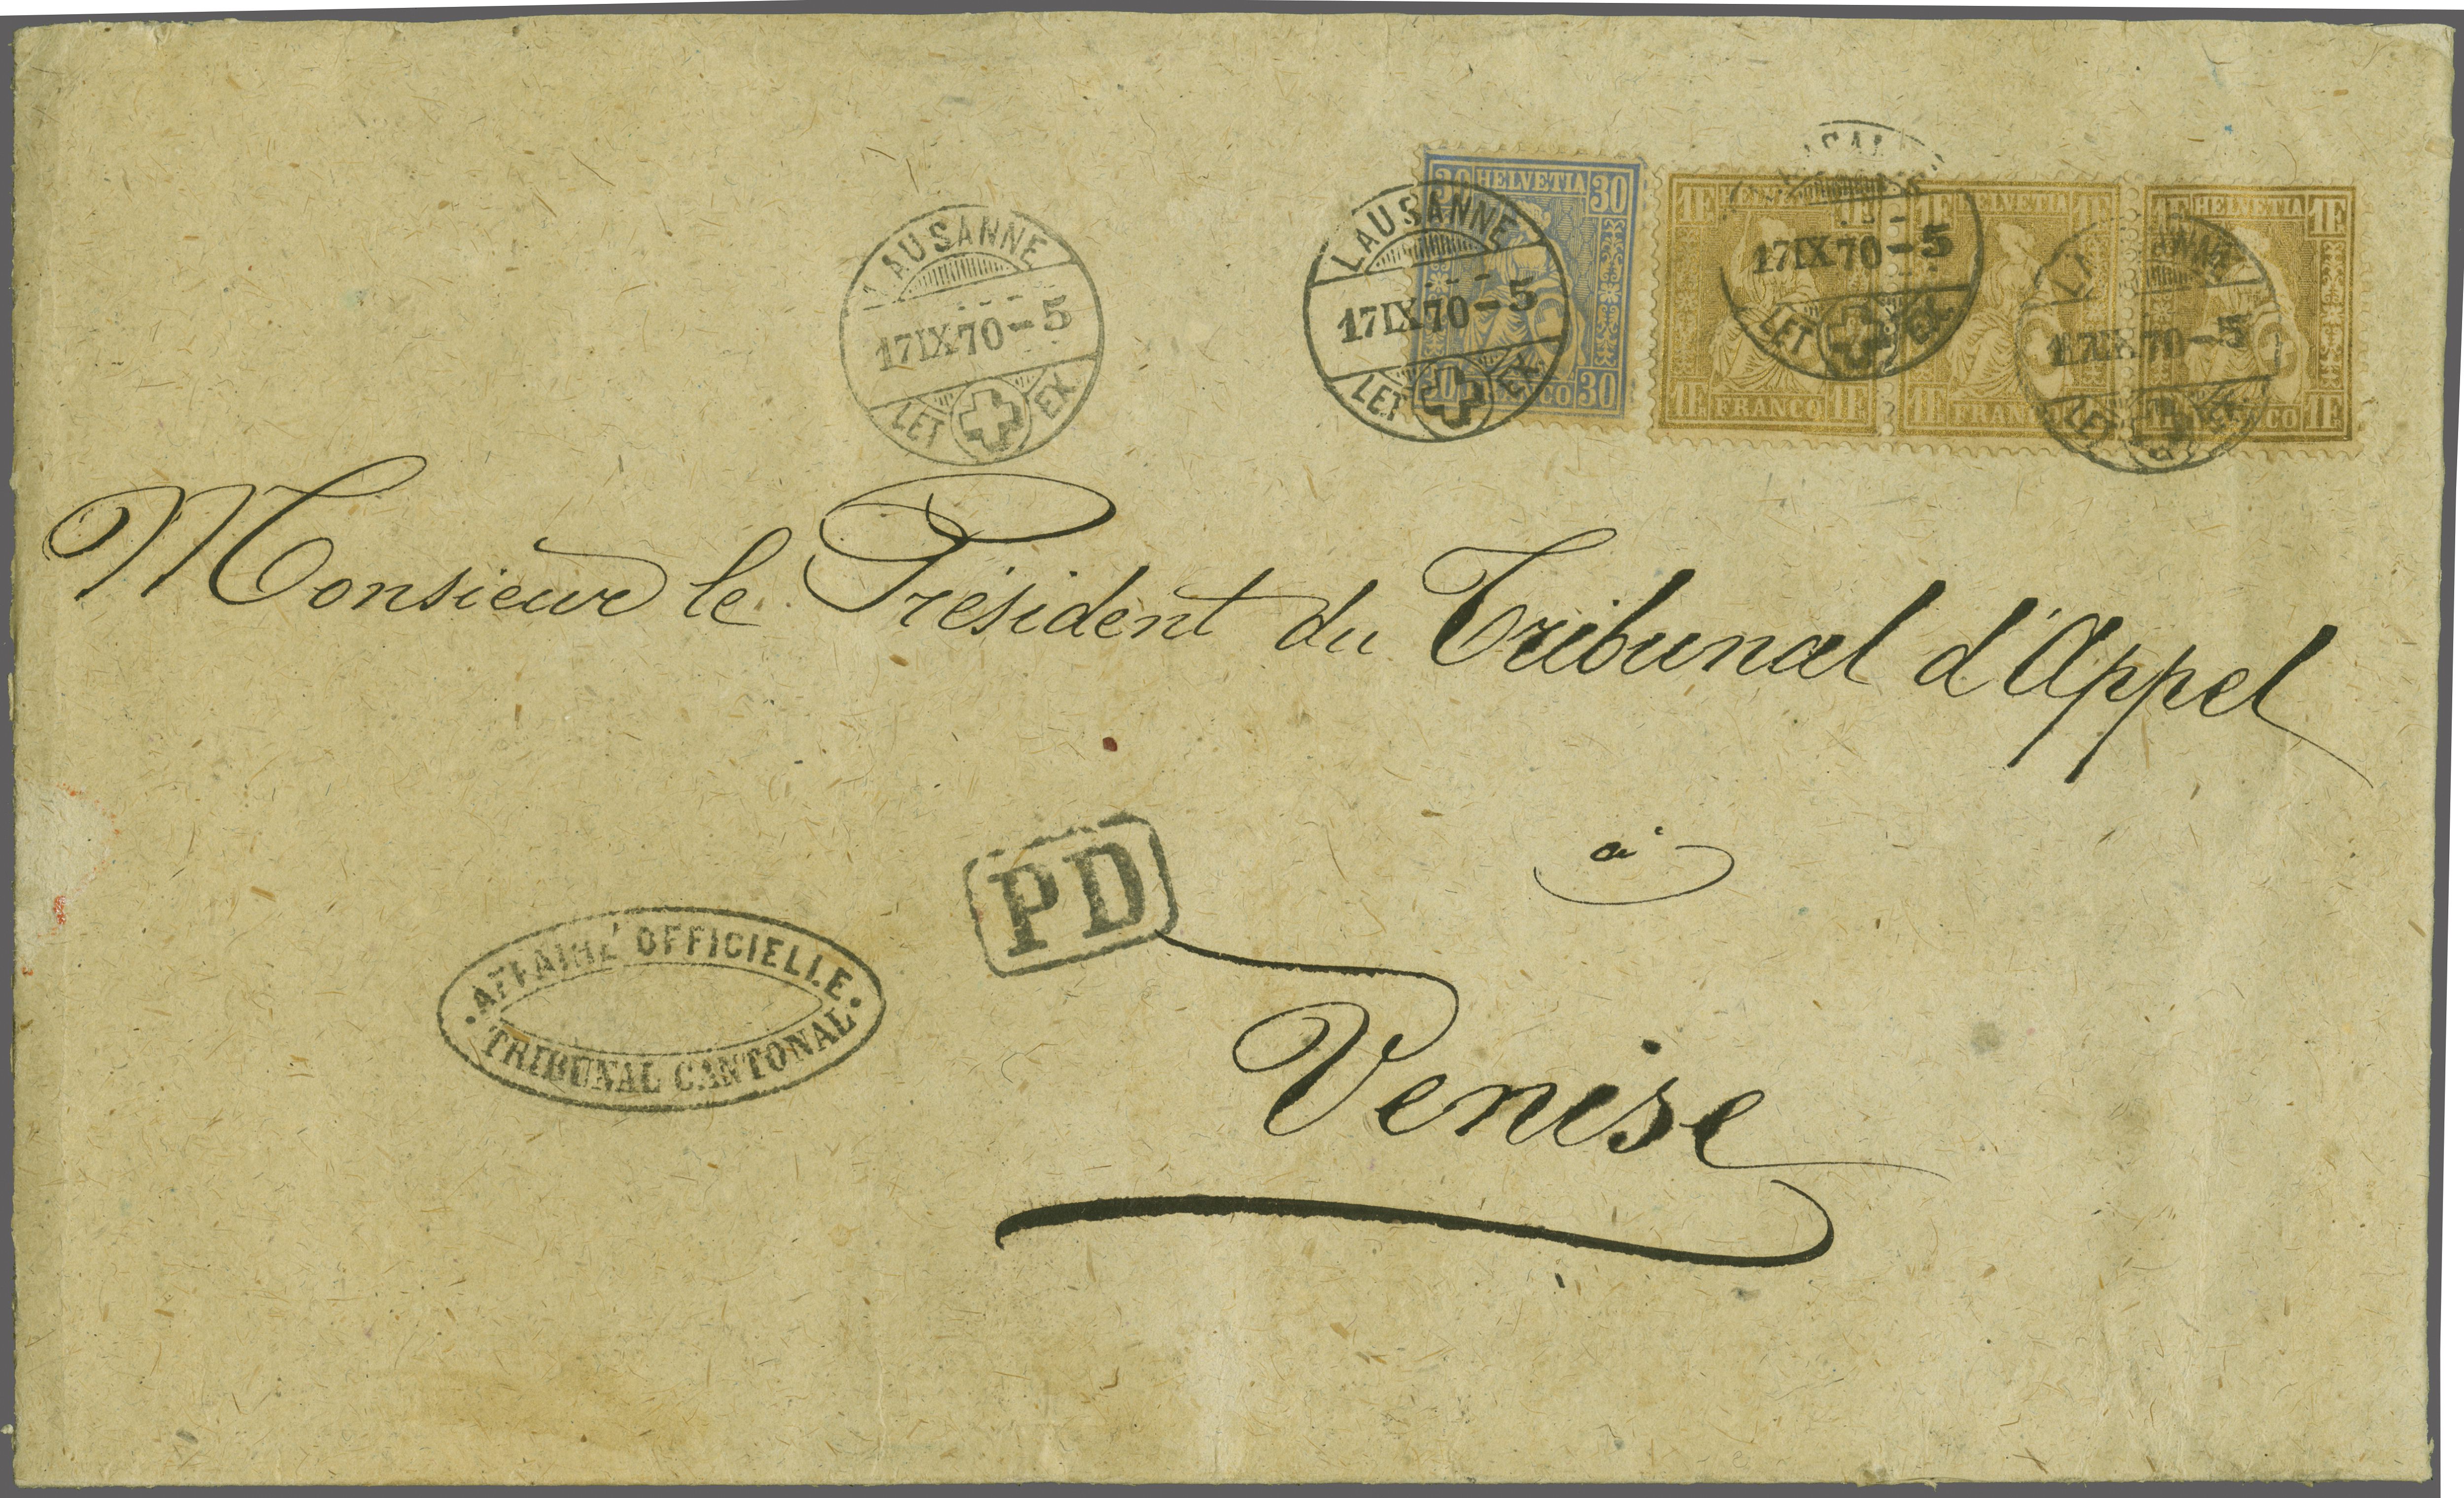 LAUSANNE
17 IX 70 - 5
LET EX.
LAUSANNE
17 IX 70 - 5
LET EX.
30 HELVETIA 30
30 30
17 IX 70 - 5
LET EX.
1F 1F
1F FRANCO 1F
1F HELVETIA 1F
1F
17 IX 70 - 5
LET EX.
1F HELVETIA 1F
1F
Monsieur le Président du Tribunal d'Appel
à
PD
AFFAIRE OFFICIELLE
TRIBUNAL CANTONAL
Venise